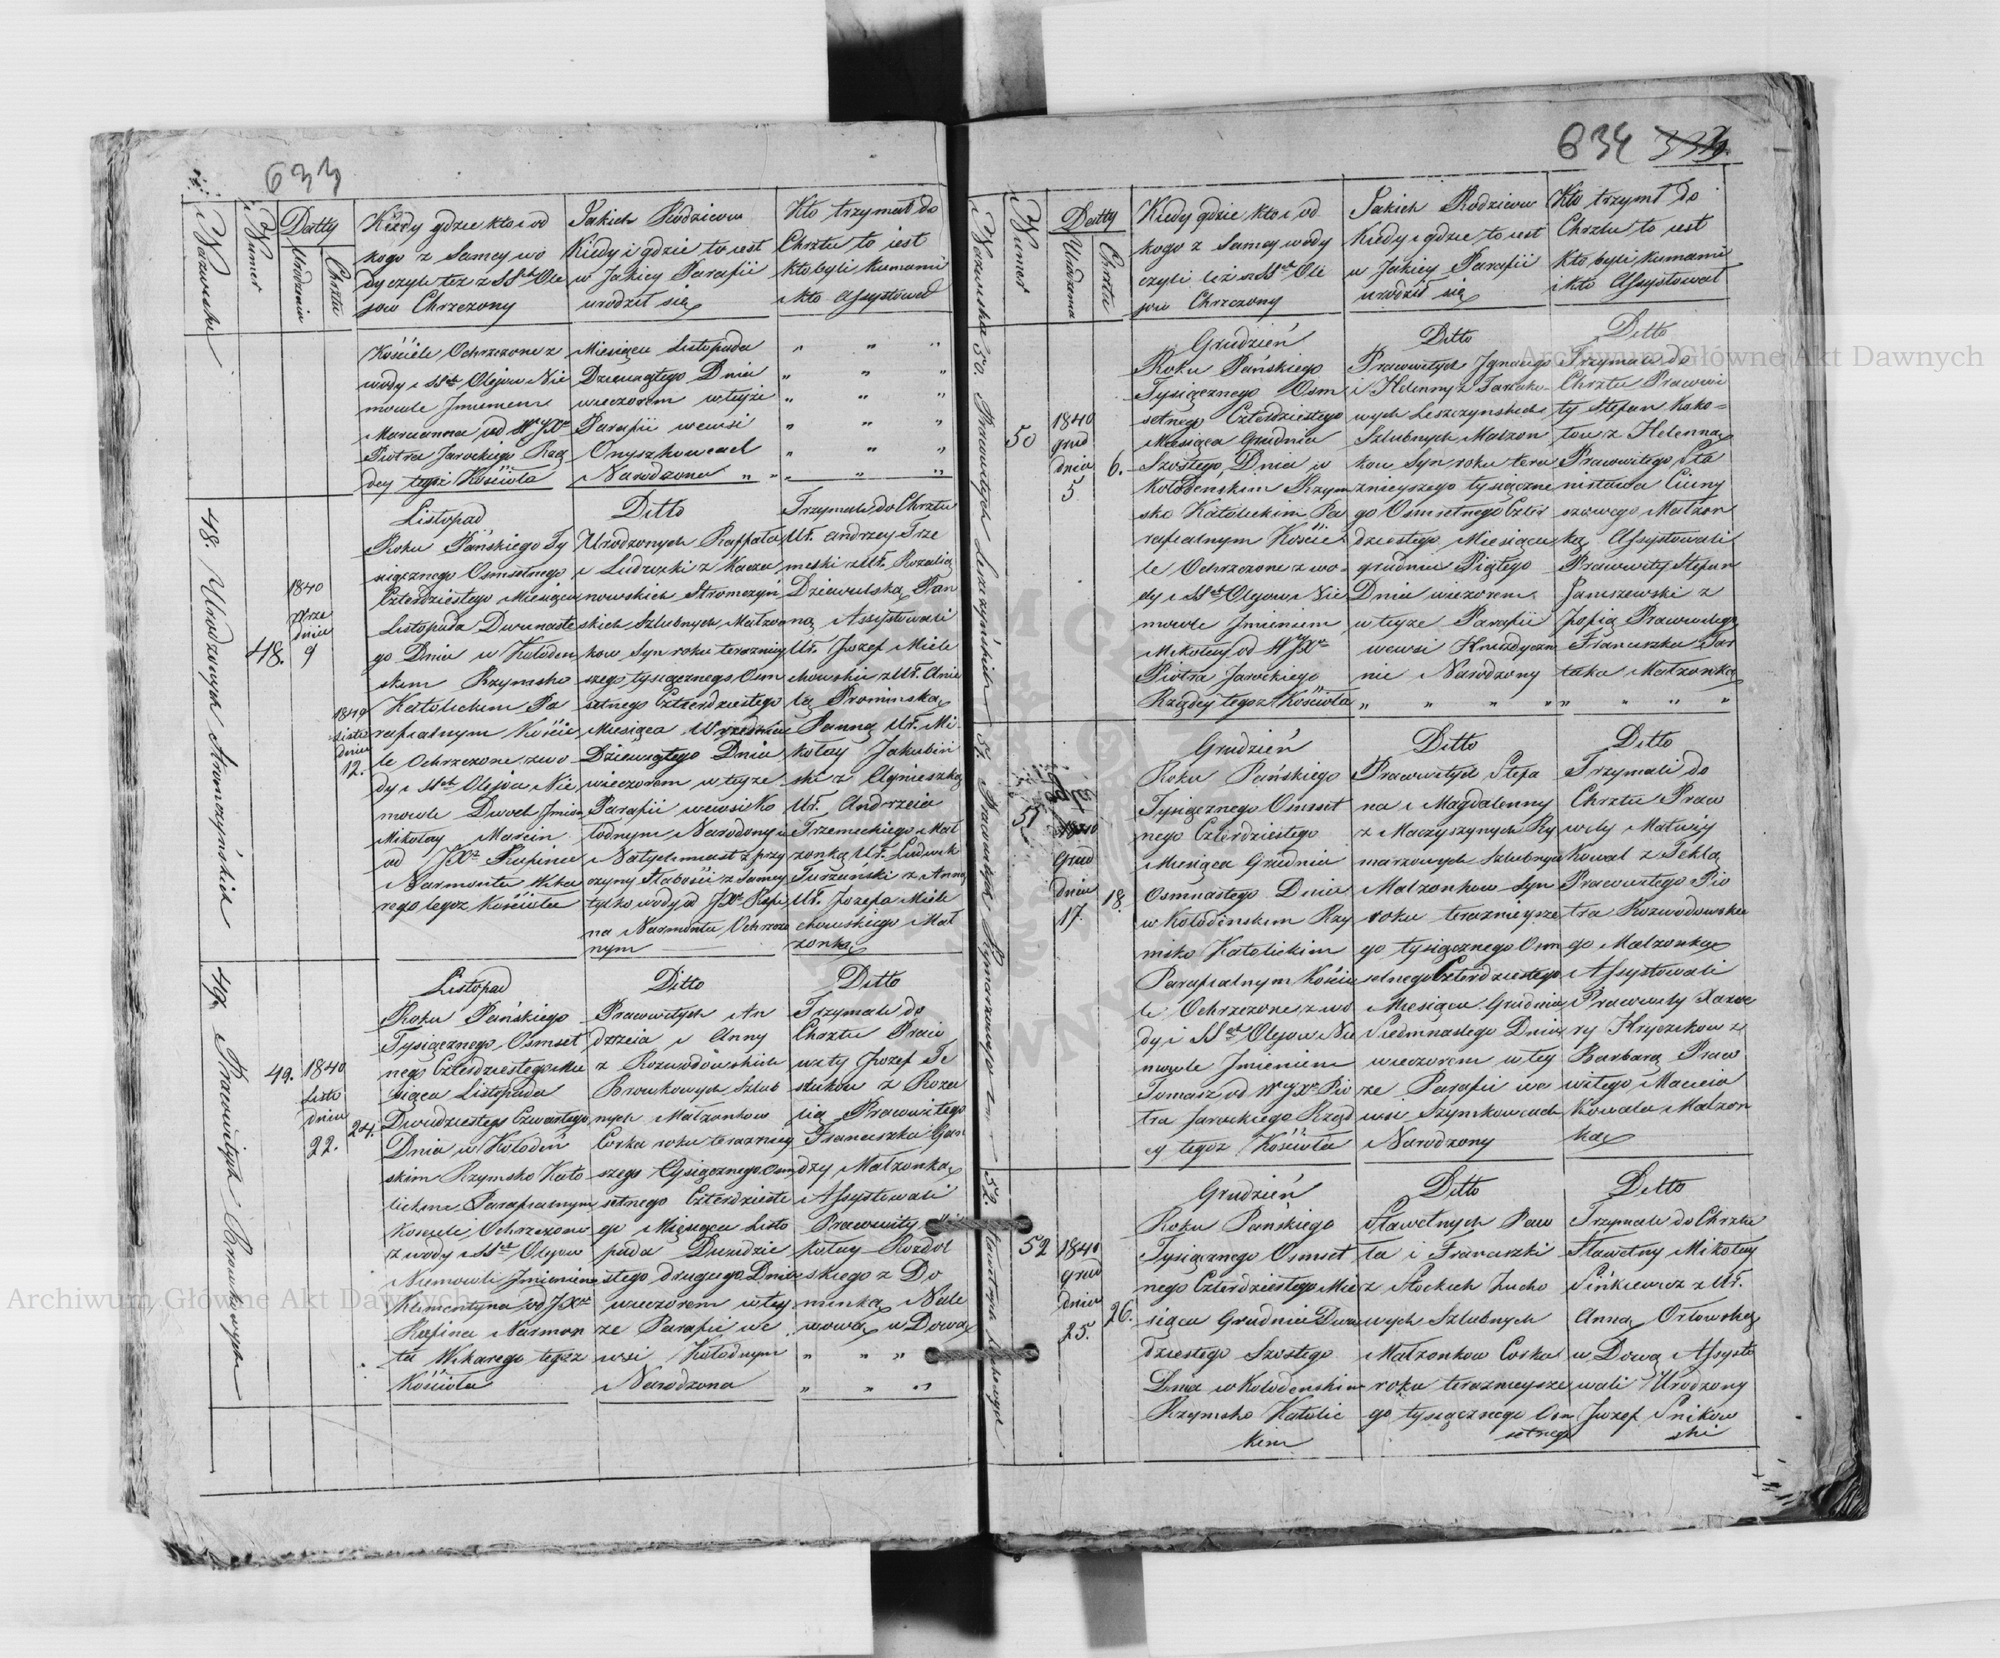 633
Nazwiska
Numer
Datty
Urodzenia
Chrztu
Kiedy gdzie kto i od
kogo z Samey wo
dy czyli też z SSch Ole
jow Chrzczony
Jakich Rodzicow
Kiedy i gdzie to iest
w Jakiey Parafii
urodził się
Kto trzymał do
Chrztu to iest
kto byli kumami
i kto Assystował
Kościele Ochrzczone z
wody i SSch Olejow Nie
mowle Jmieniem
Maryanna od
Piotra Jarockiego Rzą
dcy tegoż Kościoła
Miesiąca Listopada
Dziewiątego Dnia
wieczorem w teyże
Parafii we wsi
Onyszkowcach
Narodzona
48. Urodzonych Stromczyńskich
48.
1840
Wrze
dnia
9
1840
Listo
dnia
12.
Listopad
Roku Pańskiego Ty
siącznego Osmsetnego
Czterdziestego Miesiąca
Listopada Dwunaste
go Dnia w Kołoden
skim Rzymsko
Katolickim Pa
rafialnym Koście
le Ochrzczone z wo
dy i SSch Olejow Nie
mowle Dwoch Jmion
Mikołay Marcin
od JX Rufina
Narmonta Wika
rego tegoż Kościoła
Ditto
Urodzonych Raffała
i Ludwiki z Kacza
nowskich Stromczyń
skich Szlubnych Małżon
kow Syn roku teraźniey
szego tysiącznego Osm
setnego Czterdziestego
Miesiąca Września
Dziewiątego Dnia
wieczorem w teyże
Parafii we wsi Ko
łodnym Narodzony i
Natychmiast z przy
czyny Słabości z Samey
tylko wody od JX Rufi
na Narmonta Ochrzczo
nym
Trzymali do Chrztu
Uł. Andrzey Trze
meski z Uł. Rozalią
Dziewulską Pan
ną Assystowali
Uł. Jozef Miele
chowski z Uł. Anie
lą Promińską
Panną Uł. Mi
kołay Jakubiń
ski z Agnieszką
Uł. Andrzeia
Trzemeskiego Mał
żonką Uł. Ludwik
Turzański z Anną
Uł. Jozefa Miele
chowskiego Mał
żonką
49. Prawowitych Browkowych
49.
1840
Listo
dnia
22.
24.
Listopad
Roku Pańskiego
Tysiącznego Osmset
nego Czterdziestego Mie
siąca Listopada
Dwudziestego Czwartego
Dnia w Kołodeń
skim Rzymsko Kato
lickim Parafialnym
Kościele Ochrzczone
z wody i SSch Olejow
Niemowle Jmieniem
Klementyna od JX
Rufina Narmon
ta Wikarego tegoż
Kościoła
Ditto
Prawowitych An
drzeia i Anny
z Rozwodowskich
Browkowych Szlub
nych Małżonkow
Corka roku teraźniey
szego Tysiącznego Osm
setnego Czterdzieste
go Miesiąca Listo
pada Dwudzie
stego drugiego Dnia
wieczorem w tey
że Parafii we
wsi Kołodnym
Narodzona
Ditto
Trzymali do
Chrztu Prawo
wity Jozef Te
sluków z Roza
lią Prawowitego
Franciszka Gan
dzy Małżonką
Assystowali
Prawowity Mi
kołay Rozdol
skiego z Do
minką Nale
wową w Dową
634
Nazwiska
50. Prawowitych Leszczyńskich
51. Prawowitych Rymarzowych
52. Sławetnych Zuchowych
Numer
Datty
Urodzenia
Chrztu
Kiedy gdzie kto i od
kogo z Samey wody
czyli też z SSch Ole
jow Chrzczony
Jakich Rodzicow
Kiedy i gdzie to iest
w Jakiey Parafii
urodził się
Kto trzymł do
Chrztu to iest
kto byli kumami
i kto Assystował
50
1840
grud
dnia
5
6.
Grudzień
Roku Pańskiego
Tysiącznego Osm
setnego Czterdziestego
Miesiąca Grudnia
Szostego Dnia w
Kołodenskim Rzym
sko Katolickim Pa
rafialnym Koście
le Ochrzczone z wo
dy i SSch Olejow Nie
mowle Jmieniem
Mikołay od
Piotra Jarockiego
Rządcy tegoż Kościoła
Ditto
Prawowitych Jgnacego
i Helenny z Taraku
wych Leszczynskich
Szlubnych Małżon
kow Syn roku tera
znieyszego tysiączne
go Osmsetnego Czter
dziestego Miesiąca
grudnia Piątego
Dnia wieczorem
w teyże Parafii
we wsi Hnizdyczn
nie Narodzony
Ditto
Trzymali do
Chrztu Prawowi
ty Stefan Koko=
tow z Helenną
Prawowitego Sta
nisława Ciuny
szowego Małżon
ką Assystowali
Prawowity Stefan
Januszewski z
Zofią Prawowitego
Franciszka Tar
taka Małżonką
51
1840
Grud
dnia
17.
18.
Grudzień
Roku Pańskiego
Tysiącznego Osmset
nego Czterdziestego
Miesiąca Grudnia
Osmnastego Dnia
w Kołodińskim Rzy
msko Katolickim
Parafialnym Koście
le Ochrzczone z wo
dy i SSch Olejow Nie
mowle Jmieniem
Tomasz od Pio
tra Jarockiego Rząd
cy tegoż Kościoła
Ditto
Prawowitych Stefa
na i Magdalenny
z Maczyszynych Ry
marzowych Szlubnych
Małżonkow Syn
roku teraznieysze
go tysiącznego Osm
setnego Czterdziestego
Miesiąca Grudnia
Siedmnastego Dnia
wieczorem w tey
że Parafii we
wsi Szymkowcach
Narodzony
Ditto
Trzymali do
Chrztu Prawo
wity Matwiy
Kowal z Teklą
Prawowitego Pio
tra Rozwodowskie
go Małżonką
Assystowali
Prawowity Xawe
ry Hryczkow z
Barbarą Prawo
witego Macieia
Kowala Małżon
ką
52
1840
Grud
dnia
25.
26.
Grudzień
Roku Pańskiego
Tysiącznego Osmset
nego Czterdziestego Mie
siąca Grudnia Dwu
dziestego Szostego
Dnia w Kołodenskim
Rzymsko Katolic
kim
Ditto
Sławetnych Paw
ła i Franciszki
z Słockich Zucho
wych Szlubnych
Małżonkow Corka
roku teraznieysze
go tysiącznego Osm
setnego
Ditto
Trzymali do Chrztu
Sławetny Mikołay
Sińkiewicz z Uł.
Anną Orłowską
w Dową Assysto
wali Urodzony
Jozef Snikow
ski
Archiwum Główne Akt Dawnych
Archiwum Główne Akt Dawnych